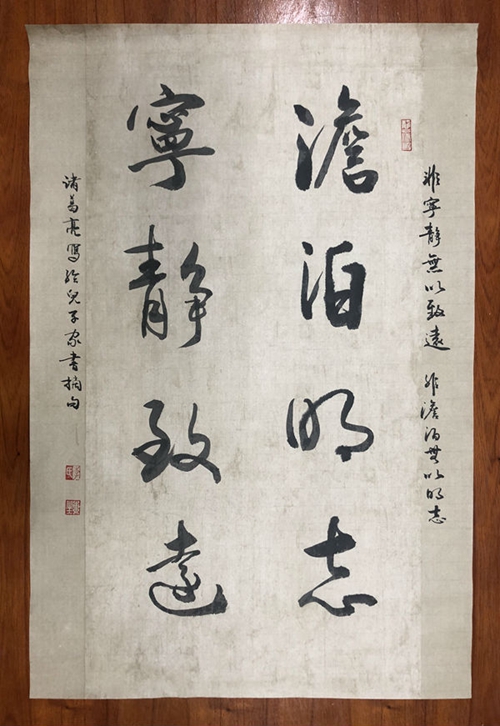 非寧靜無以致遠 非澹泊無以明志
澹泊明志
寧靜致遠
诸葛亮寫给兒子家書摘句